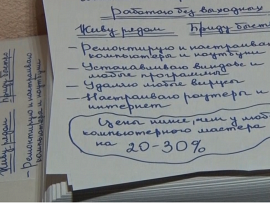 Работаю без выходных
Живу рядом Приду быстро
- Ремонтирую и настраиваю
компьютеры и ноутбуки
- Устанавливаю виндовс и
любые программы
- Удаляю любые вирусы
- Настраиваю роутеры и
интернет
Цены ниже, чем у любого
компьютерного мастера
на 20-30%
Живу рядом
- Ремонтирую и настраиваю
компьютеры и ноутбуки